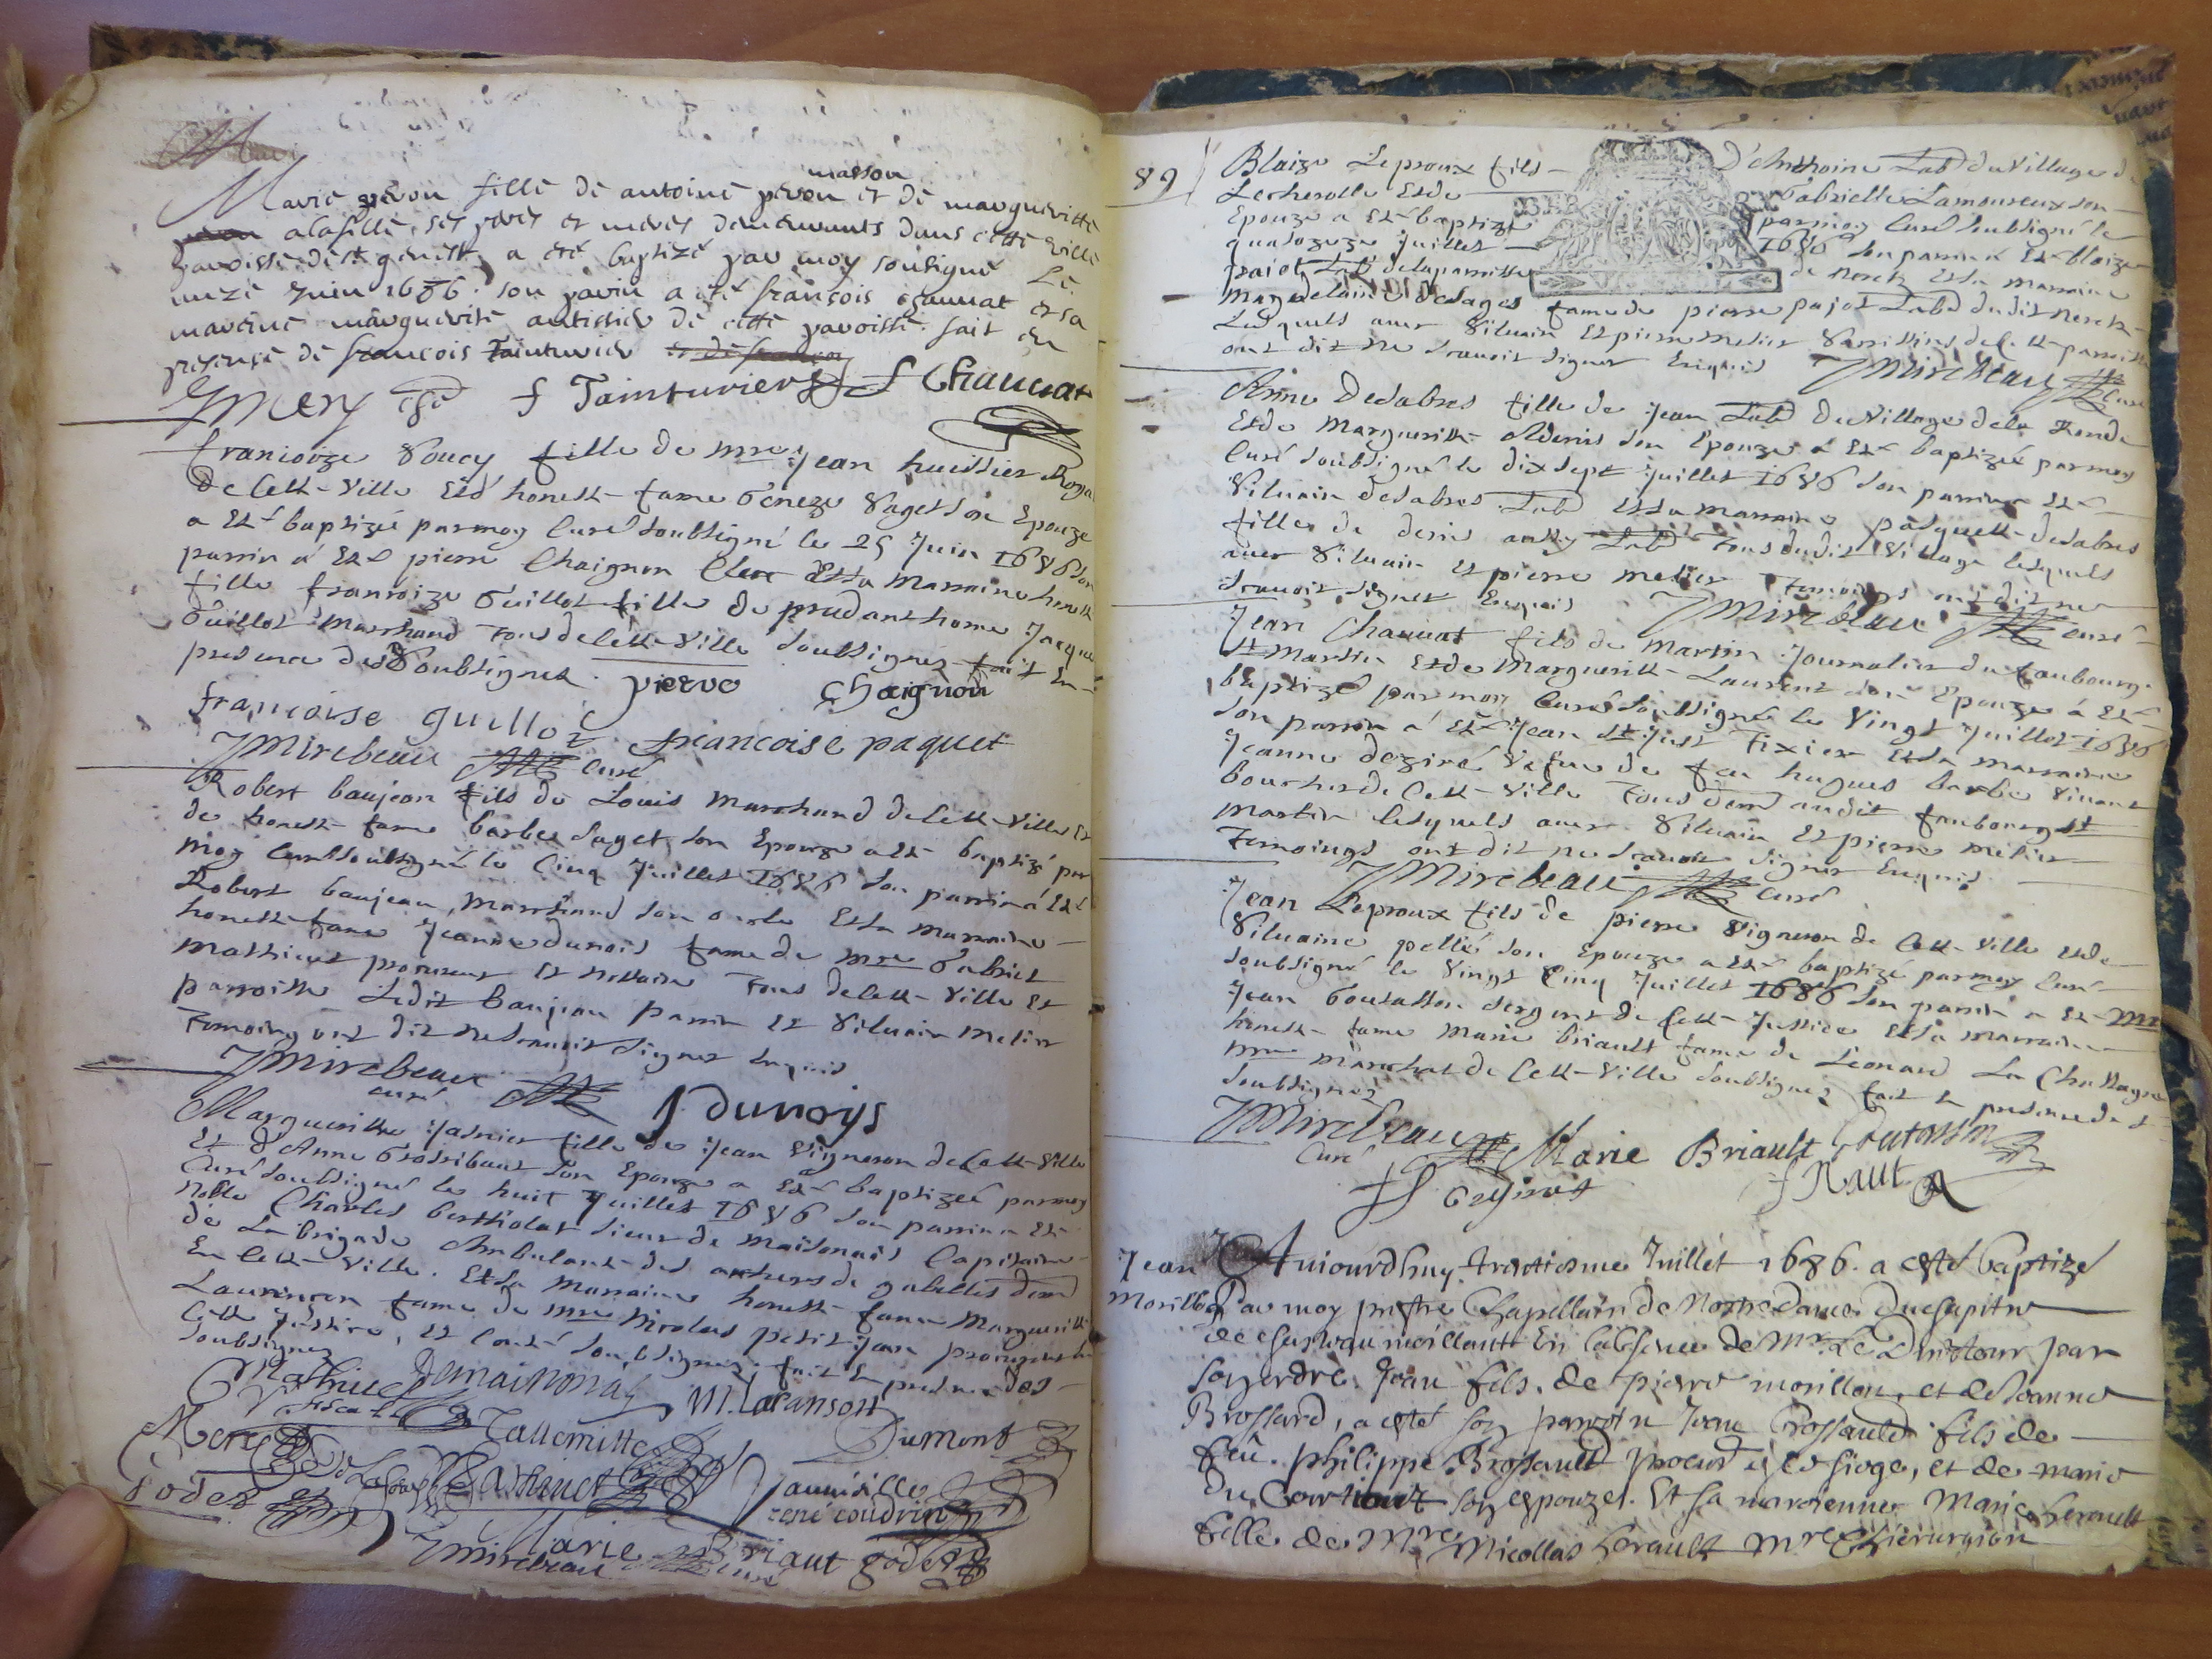 masson
Marie peron fille de antoine peron et de margueritte
alafille, ses peres et meres demeurants dans cette ville
paroisse de st genest, a eté baptizé par moy sousigné Le
unze Juin 1686. son parin a eté françois chauuat et sa
mareine marguerite de cette paroisse. fait en
presence de francois Tainturier
Mery f Tainturier f Chauuat
francoize Soucy fille de mre Jean huissier Royal
de Cette Ville Et d'honeste fame Geneze Saget son Epouze
a Esté baptizée par moy Curé soubsigné le 25 Juin 1686 son
parrin a Esté pierre Chaignon Clerc Et sa Marraine honeste
fille francoize Guillot fille de prudant home Jacque
Guillot Marchand Tous de Cette Ville soubsignez fait En
presence des soubsignez. pierre Chaignon
francoise guillot francoise paquet
J Mirebeau Curé
Robert baujeon fils de Louis Marchand de Cette Ville Et
de honeste fame barbe Saget son Epouze a Esté baptizé par
moy Curé soubsigné le Cinq Juillet 1686 son parrin a Esté
Robert baujean, Marchand son oncle Et sa Marraine
honeste fame Jeanne dunois fame de Mre Gabriel
Mathieu procureur Et nottaire Tous de Cette Ville Et
parroisse Ledit baujeau parrin Et Siluain Melier
Temoing ont dit ne scauoir signer Enquis
J Mirebeau curé J Dunoiys
Margueritte Jasnier fille de Jean Vigneron de Cette Ville
Et d'Anne son Epouze a Esté baptizeé par moy
Curé soubsigné le huit Juillet 1686 son parrin a Esté
Noble Charles bertholat sieur de Maisonnais Capitaine
de La brigade Ambulant des archers de gabelles demt
En Cette Ville. Et sa Marraine honeste fame Margueritte
Laurencon fame de Mre Nicolas petit Jean procureur En
Cette Justice, Et Conte soubsignez fait En presence des
soubsignez
Mathieu Demaisonnais M. Loranson
Tallemitte Dumont
Mercier
rené coudrin
Godet
Marie Briaut godet
J Mirebeau curé
89
Blaize Leproux fils D'Anthoine Labr du Village de
Lecherolle Et de Gabrielle Lamoureux son
Epouze a Esté baptizé par moy Curé soubsigné le
quatozeze Juillet 1686 son parrin a Esté blaize
pajot Labr de la parroisse de nerets Et sa Marraine
Magdelaine desages fame de pierre pajot Labr dudit nerets
Lesquels auec Siluain Et pierre Melier de Cette parroisse
ont dit ne scauoir signer Enquis J Mirebeau Curé
Anne Desabres fille de Jean Labr du Village de la
Et de Margueritte son Epouze a Esté baptizée par moy
Curé soubsigné le dix sept Juillet 1686 son parrin a Esté
Siluain desabres Labr Et sa Marraine pasquette desabres
fille de denis Labr Tous dudit Village lesquels
auec Siluain Et pierre Melier Temoings ont dit ne
scauoir signer Enquis J Mirebeau curé
Jean Chauuat fils de Martin Journalier du faubourg
St Martin Et de Margueritte Laurent son Epouze a Esté
baptizé par moy Curé soubsigné le Vingt Juillet 1686
son parrin a Esté Jean St Just Tixier Et sa marraine
Jeanne deziré Vefue de feu hugues barbe Viuant
boucher de Cette Ville Tous demt audit faubourg St
Martin lesquels auec Siluain Et pierre Melier
Temoings ont dit ne scauoir signer Enquis
J Mirebeau Curé
Jean Leproux fils de pierre Vigneron de Cette Ville Et de
Siluaine pellé son Epouze a Esté baptizé par moy Curé
soubsigné le Vingt Cinq Juillet 1686 son parrin a Esté Mre
Jean Goutasson sergent de Cette Justice Et sa marraine
honeste fame Marie briault fame de Leonard La Chastagne
Mre Marechat de Cette Ville soubsignez fait En presence des
soubsignez
J Mirebeau Curé Marie Briault Goutasson
f Raut
Jean
Morillon
Auiourdhuy trentiesme Juillet 1686. a esté baptizé
Par moy prestre Chapellain de Nostre dame Du chapitre
de chasteau meillant En l'absence de Mr. Le Directeur par
son ordre. Jean fils. de pierre morillon, et de Joanne
Brossard, a esté son parrain Jean Brossauld fils de
feu. philippe Brossauld procur es ce siege, et de marie
Du Courtioux son espouze. Et sa maraienne Marie herault
fille de Mre Nicollas herault mre Chierurgien